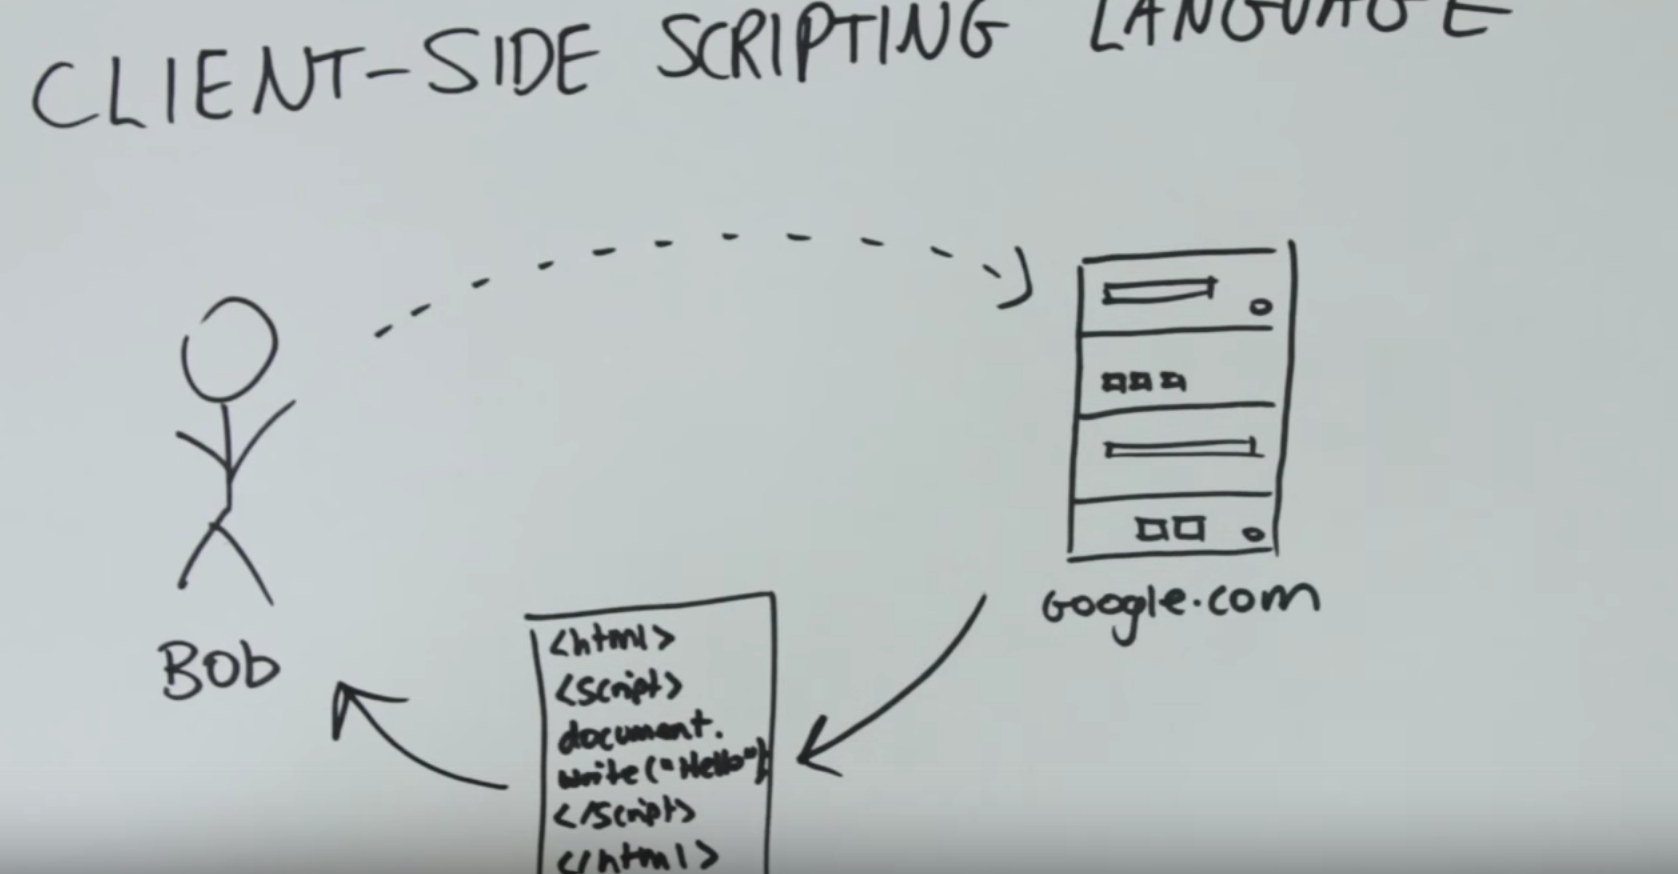 CLIENT-SIDE SCRIPTING LANGUAGE
Google.com
BOb
<html>
<script>
document.
write("Hello")
</script>
</html>